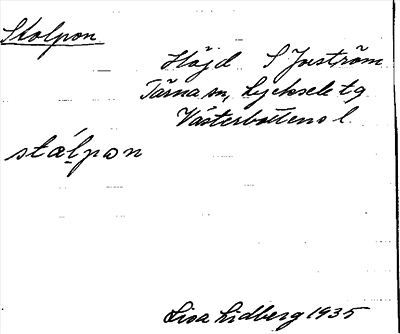 Stolpon
Höjd S Joström
Tärna sn, Lycksele tg
Västerbottens l.
stålpon
Lisa Lidberg 1935